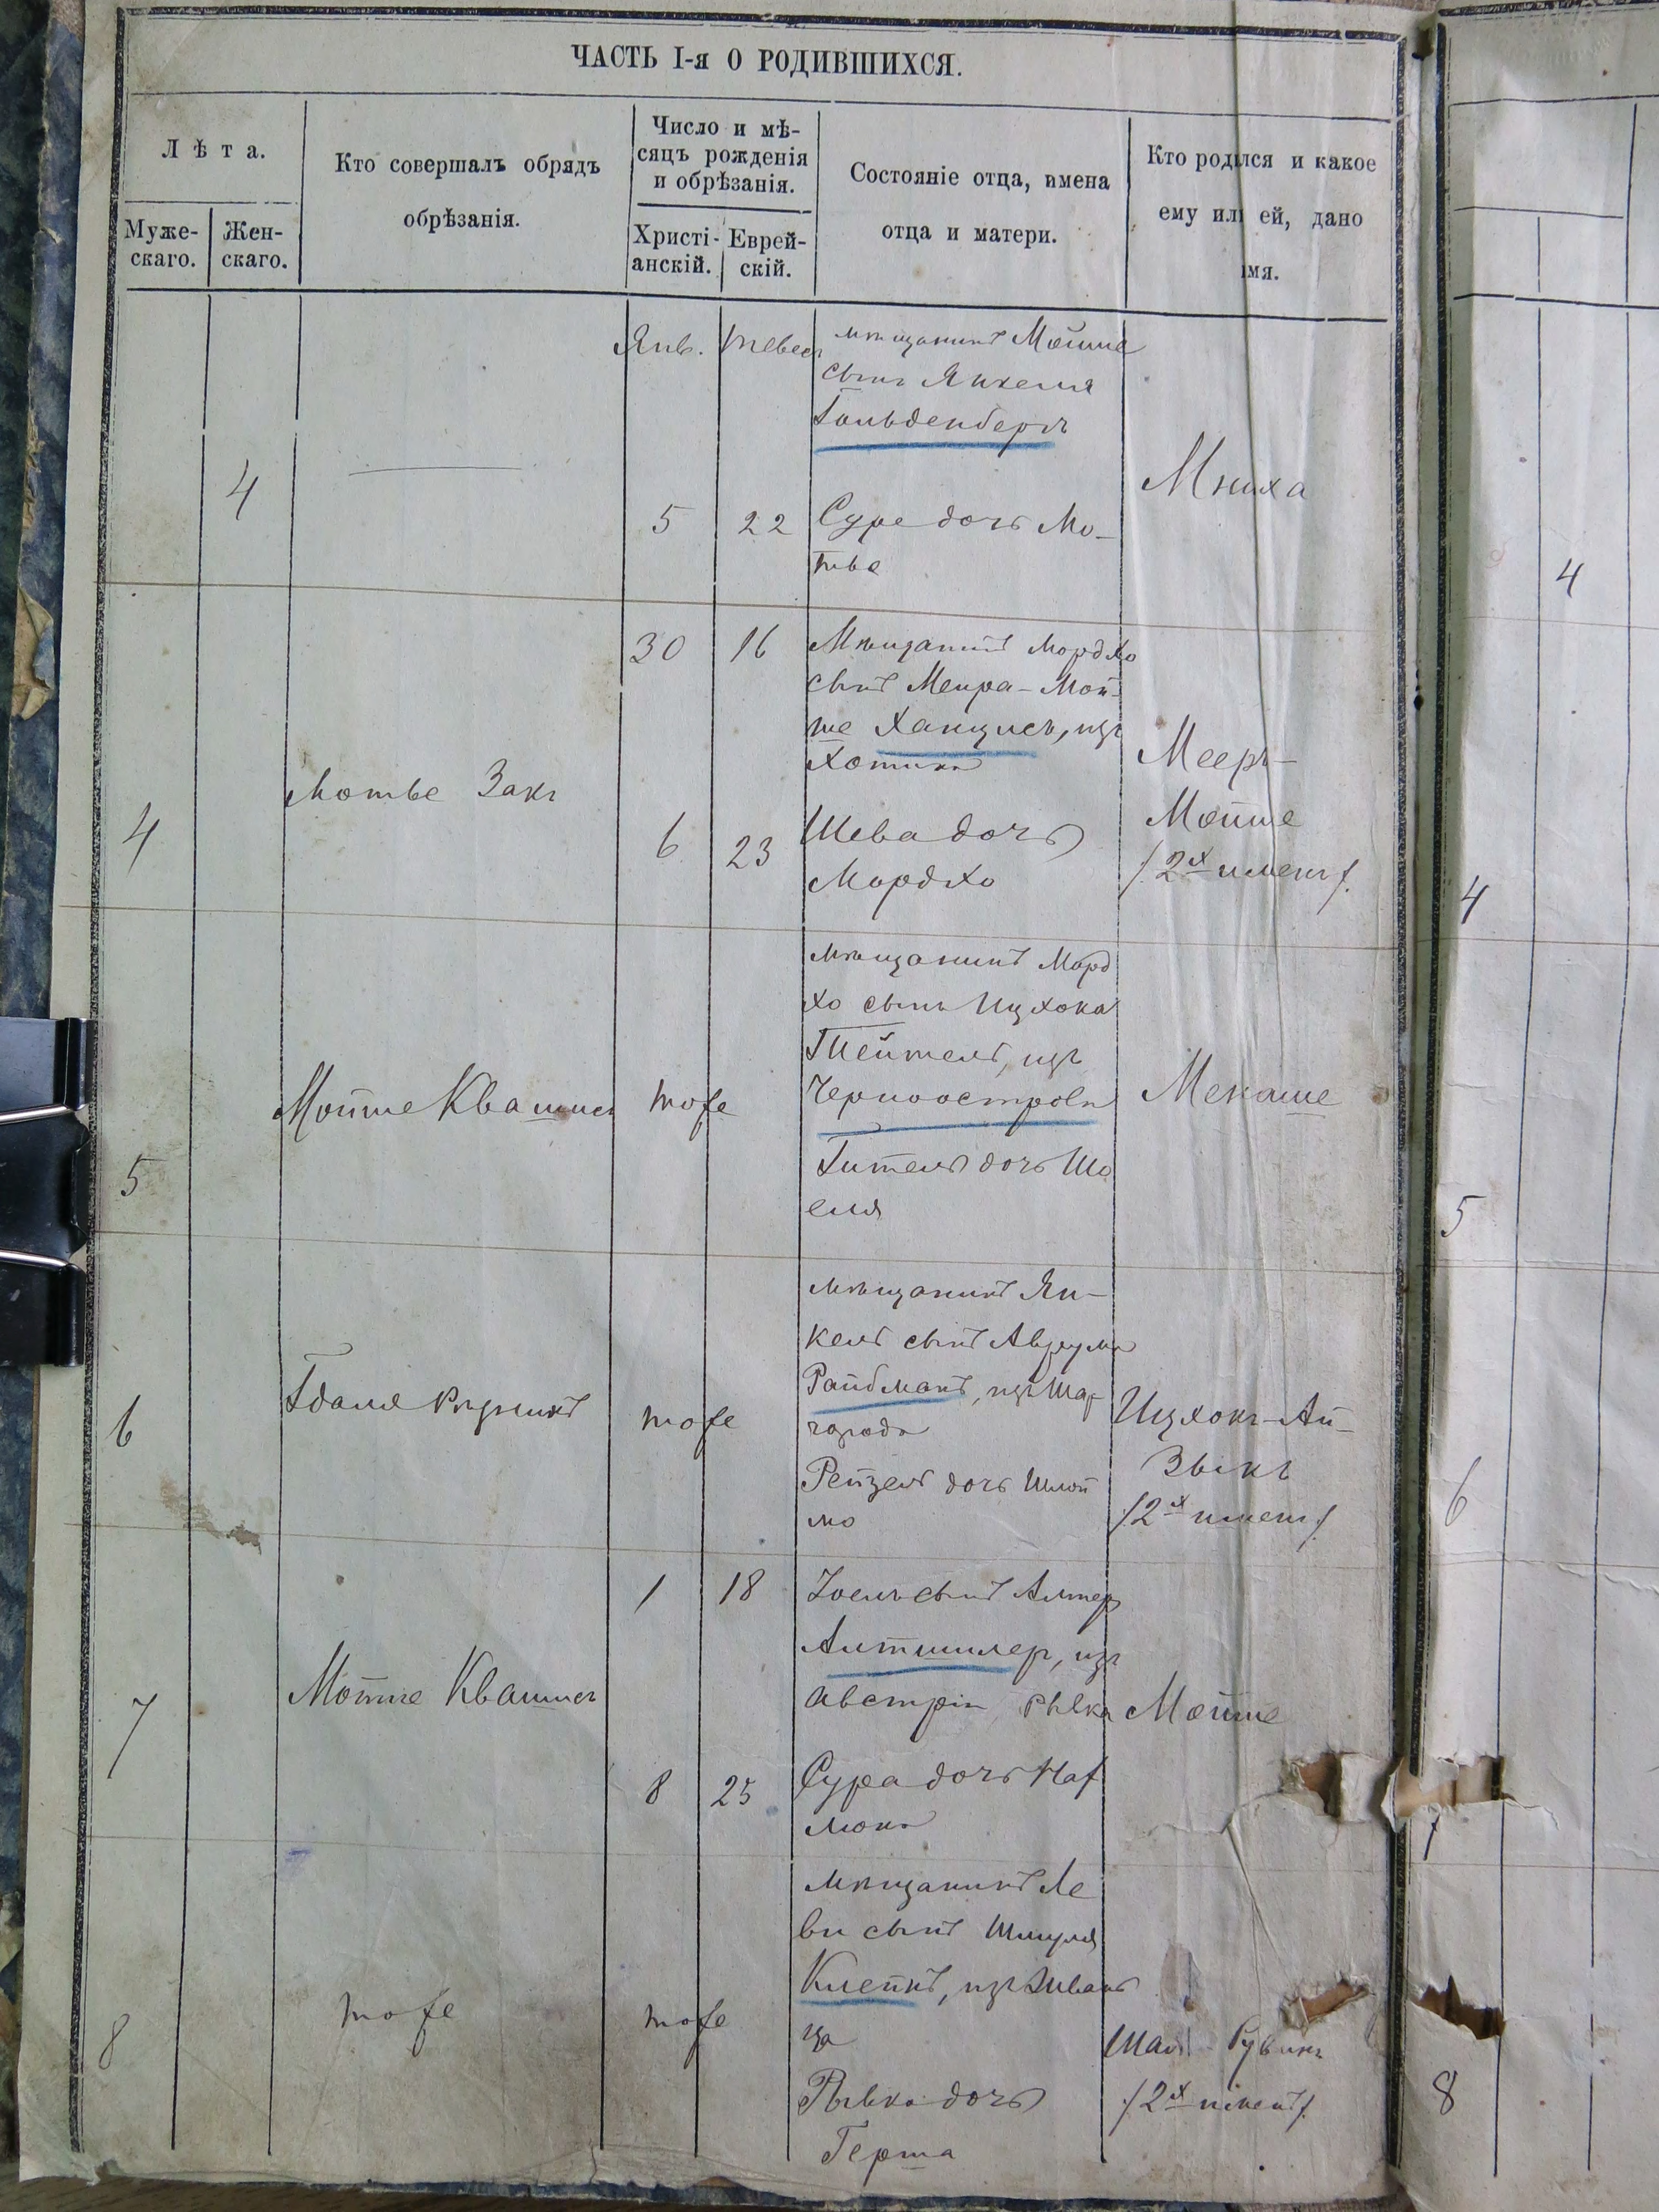 ЧАСТЬ I-я О РОДИВШИХСЯ.
Лѣта.
Муже-
скаго.
Жен-
скаго.
Кто совершалъ обрядъ
обрѣзанія.
Число и мѣ-
сяцъ рожденія
и обрѣзанія.
Христі-
анскій.
Еврей-
скій.
Состояніе отца, имена
отца и матери.
Кто родился и какое
ему или ей, дано
имя.
4
Янв.
Тевесъ
5
22
мѣщанинъ Мошше
сынъ Янкеля
Гольденберъ
Суре дочь Мо-
тье
4
4
Мотье Закъ
30
16
6
23
Мѣщанинъ Мордко
сынъ Меира-Мой-
ше
изъ
Хотина
Шева дочь
Мордко
Мееръ-
Мойше
/2х именъ/.
4
5
Мойше Квашисъ
тоже
мѣщанинъ Морд
ко сынъ Ицхока
Тейтель, изъ
Черноострова
Гитель дочь Шо
еля
Менаше
5
6
Гдаля
тоже
мѣщанинъ Ян-
кель сынъ Аврума
Райбманъ, изъ Шар
города
Рейзель дочь Шлой
мо
Ицхокъ-Ай-
Зыкъ
/2х именъ/.
6
7
Мойше Квашисъ
1
18
8
25
Іоель сынъ Алтер
изъ
Австріи
Сура дочь
Мойше
8
тоже
тоже
мѣщанинъ Ле
ви сынъ Шмуля
изъ Жванъ
ца
Рывка дочь
Герша
Рувинъ
/2х именъ/.
8